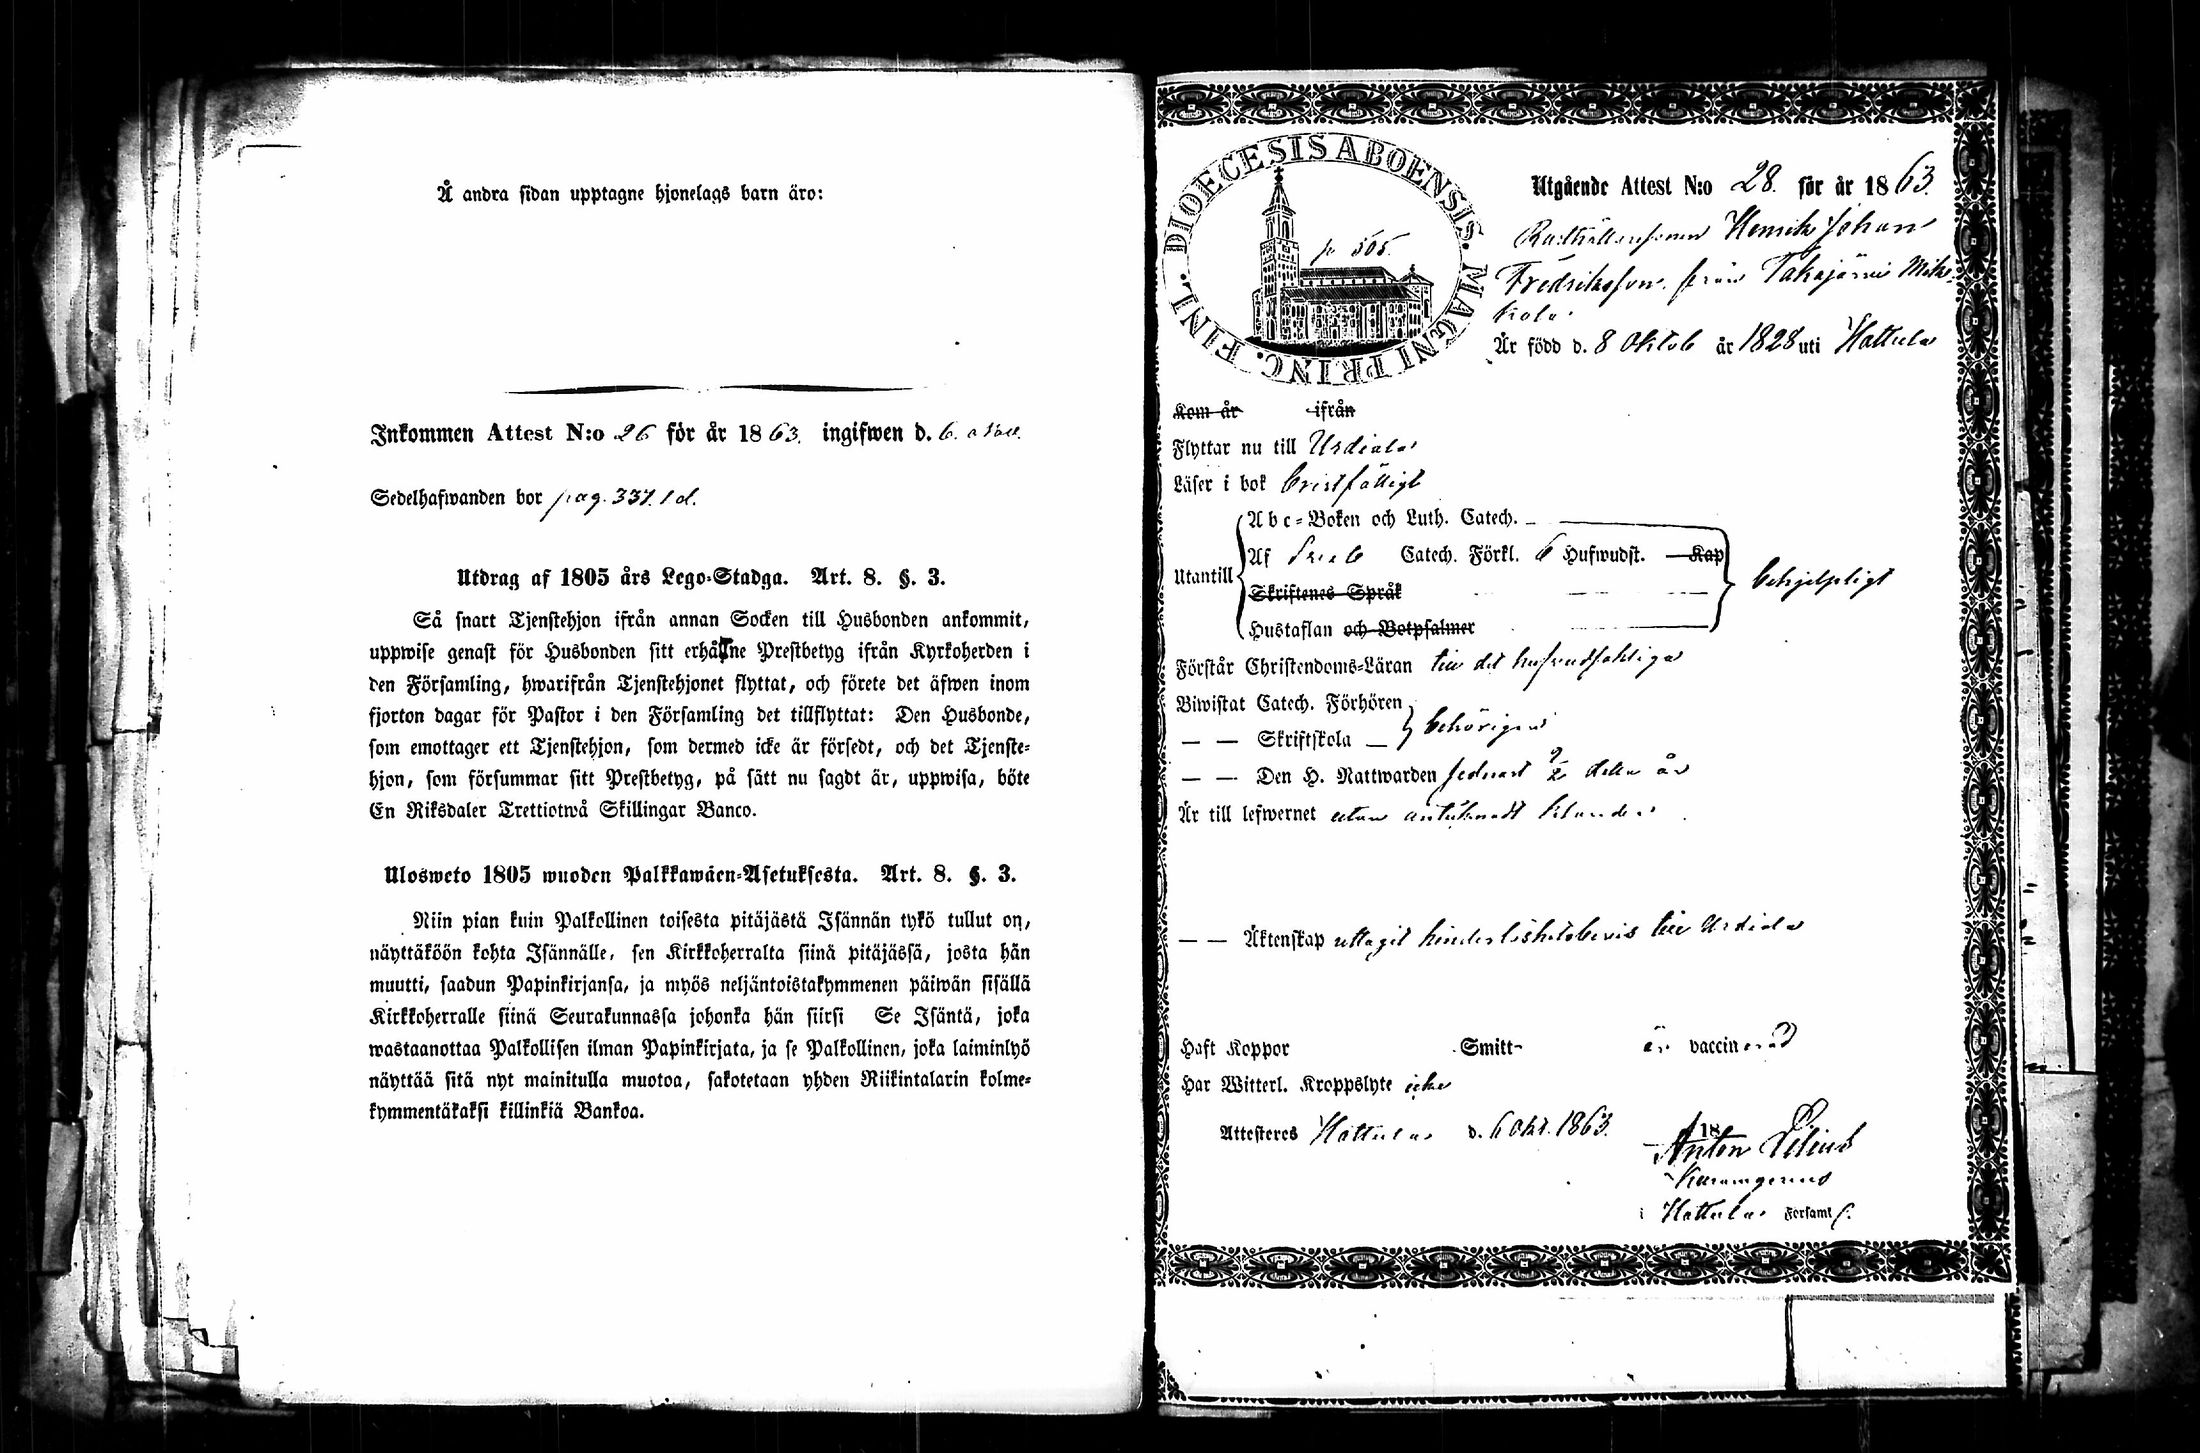 Å andra sidan upptagne hjonelags barn äro:
Inkommen Attest N:o 26 för år 1863. ingifwen d. 6.
Sedelhafwanden bor pag. 337.
Utdrag af 1805 års Lego-Stadga. Art. 8. §. 3.
Så snart Tjenstehjon ifrån annan Socken till Husbonden ankommit,
uppwise genast för Husbonden sitt erhållne Prestbetyg ifrån Kyrkoherden i
den Församling, hwarifrån Tjenstehjonet flyttat, och förete det äfwen inom
fjorton dagar för Pastor i den Församling det tillflyttat: Den Husbonde,
som emottager ett Tjenstehjon, som dermed icke är försedt, och det Tjenste-
hjon, som försummar sitt Prestbetyg, på sätt nu sagdt är, uppwisa, böte
En Riksdaler Trettiotwå Skillingar Banco.
Ulosweto 1805 wuoden Palkkawäen-Asetuksesta. Art. 8. §. 3.
Niin pian kuin Palkollinen toisesta pitäjästä Isännän tykö tullut on,
näyttäköön kohta Isännälle, sen Kirkkoherralta siinä pitäjässä, josta hän
muutti, saadun Papinkirjansa, ja myös neljäntoistakymmenen päiwän sisällä
Kirkkoherralle siinä Seurakunnassa johonka hän siirsi Se Isäntä, joka
wastaanottaa Palkollisen ilman Papinkirjata, ja se Palkollinen, joka laiminlyö
näyttää sitä nyt mainitulla muotoa, sakotetaan yhden Riikintalarin kolme-
kymmentäkaksi killinkiä Bankoa.
DIOECESIS ABOENSIS. MAGNI PRINC. FINL.
p 505.
Utgående Attest N:o 28. för år 1863.
Henrik Johan
Fredriksson från Takajärvi Mik-
kola
Är född d. 8 Oktob år 1828 uti Hattula
Kom år ifrån
Flyttar nu till Urdiala
Läser i bok bristfälligt
Utantill
A b c-Boken och Luth. Catech.
Af Catech. Förkl. 6 Hufwudst. Kap
Skriftenes Språk
Hustaflan och Botpsalmer
behjelpligt
Förstår Christendoms-Läran till det hufvudsakliga
Biwistat Catech. Förhören
— — Skriftskola — behörigen
— — Den H. Nattwarden sednast 9/2 detta år
Är till lefwernet utan antecknadt klander
— — Äktenskap uttagit hinderlöshetsbevis till Urdiala
Haft Koppor Smitt- är vaccinerad
Har Witterl. Kroppslyte icke
Attesteres Hattula d. 6 Okt. 1863. 18
Anton Lilius
i Hattula Forsaml